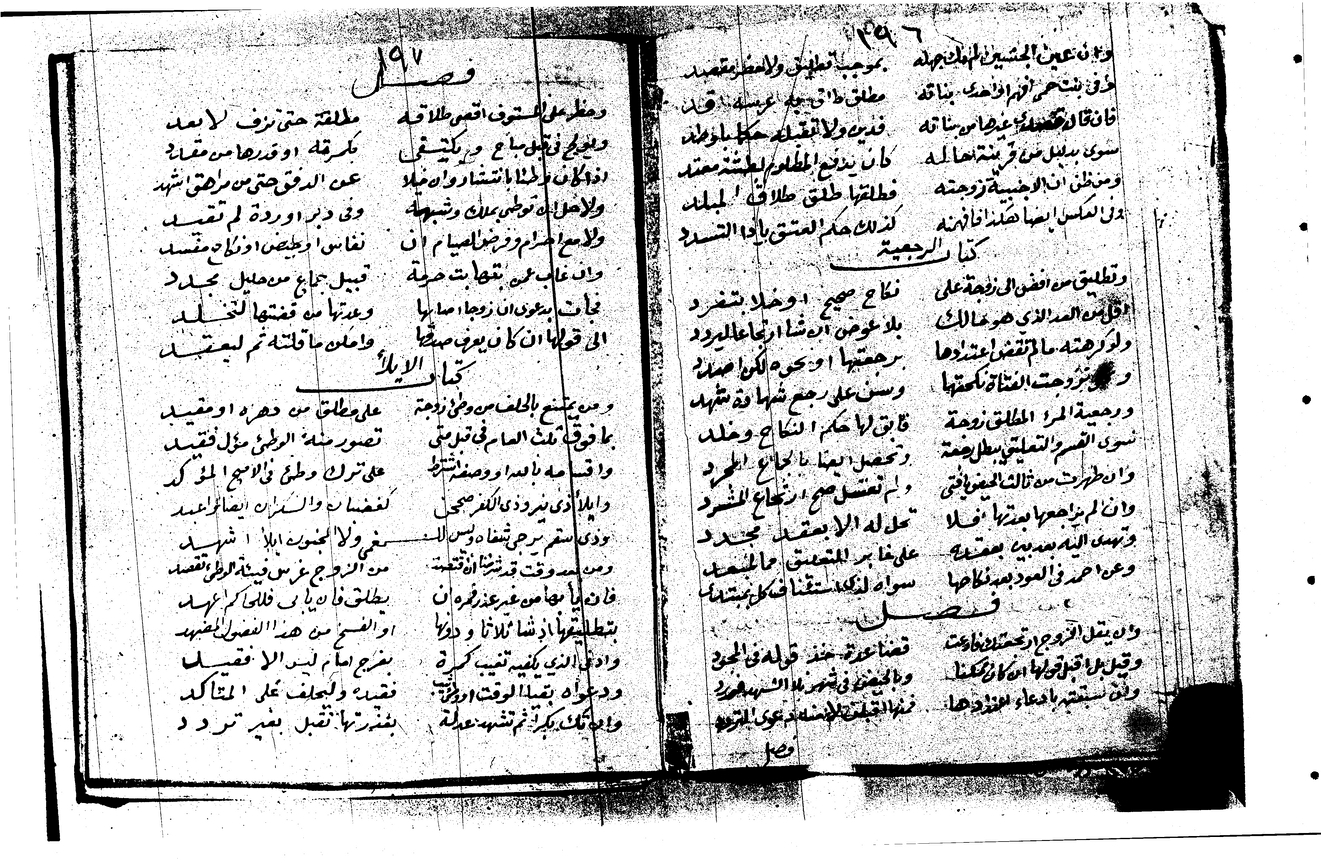 ١٩٦
وإن عين الجنسين لم يك جهله بموجب تطليق ولا لفظ مقصد
وفي بنت حمي أفهم أو احدى بناته مطلق طالق به عرسه قد
فإن قال قصدي غيرها من بناته فدين ولا تقبله حكما بأوطد
سوى بدليل من قرينة حاله كان يدفع المظلوم بطشة معتد
ومن ظن ان الاجنبية زوجته فطلقها طلق طلاق المبلد
وفي العكس ايضا هكذا فافهمنه كذلك حكم العتق يا ذا التسدد
كتاب الرجعية
وتطليق من افضى الى زوجة على نكاح صحيح او خلا بتفرد
اقل من العد الذي هو مالك بلا عوض ان شا ارتجاعا ليردد
ولو كرهته ما لم تقض اعتدادها برجعتها او نحوه لكن اصدد
وتزوجت الفتاة نكحتها وسن على رجع شهادة شهد
ورجعية المرء المطلق زوجة فابق لها حكم النكاح وخلد
سوى القسم والتعليق بطل رجعة وتحصل ايضا بالجماع المجرد
وان طهرت من ثالث الحيض يا فتى ولم تغتسل صح ارتجاع المشرد
وان لم يراجعها بعدتها فلا تحل له الا بعقد مجدد
وتهدى اليه بعد بعقده على غابر التعليق
وعن احمد في العود بعد نكاحها سواه لذلك استقنا فكل بمبتدى
فصل
وان يقل الزوج ارتجعتك فادعت قضا عدة خذ قوله في المجود
وقيل بل اقبل قولها ان كان ممكنا وبالحيض في شهر بلا الشهد اردد
وان سبقته بادعاء اعتدادها فمنها اقبلن لانقضاء دعوى المترد
فصل
١٩٧
فصل
وحظر على المستوف اقصى طلاقه مطلقة حتى تزف لابعد
ويولج في قبل مباح ويكتفى بكمرته او قدرها من مقدد
اذا كان وطئا بانتشار وان خلا عن الدفق حتى من مراهق اشهد
ولا حل ان توطى بملك وشبهة وفي دبر او ردة لم تقيد
ولا مع احرام وفرض الصيام ان نفاس او بحيض او نكاح مفسد
وان غاب عمن بتها بت حرمة قبيل جماع من حليل مجدد
فجات بدعوى ان زوجا اصابها وعدتها من قضتها لتخلد
الى قولها ان كان يعرف صدقها وامكن ما قلته ثم ليعقد
كتاب الايلاء
ومن يمتنع بالحلف من وطئ زوجة على مطلق من دهره او مقيد
بما فوق ثلث العام في قبل متى تصور منه الوطئ مؤل فقيد
واقسامه بالله او وصفه اشترط على ترك وطئ في الاصح المؤكد
وايلا ذي تمييز وذي الكفر صححن كغضبان والسكران ايضا واعبد
وذي سقم يرجى شفاه وليس للصغير ولا المجنون ايلا اشهد
ومن بعد وقت قد شرطنا ان قضته من الزوج عرس فيئة الوطئ تقصد
فان يأبها من غير عذر فمره ان يطلق فان يابى فللحاكم امهد
بتطليقها ان شا ثلاثا ودونها او الفسخ من هذا الفضول المضهد
وادنى الذي يكفيه تغييب كمرة بفرج امام ليس الا فقيد
ودعواه بقيا الوقت او وطئ ثيب فقيده وليحلف على المتاكد
وان تك بكرا ثم تشهد عدلة بعذرتها تقبل بغير تردد